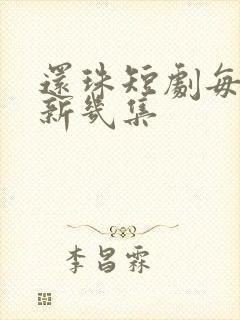 還珠短劇每
新幾集
李昌霖